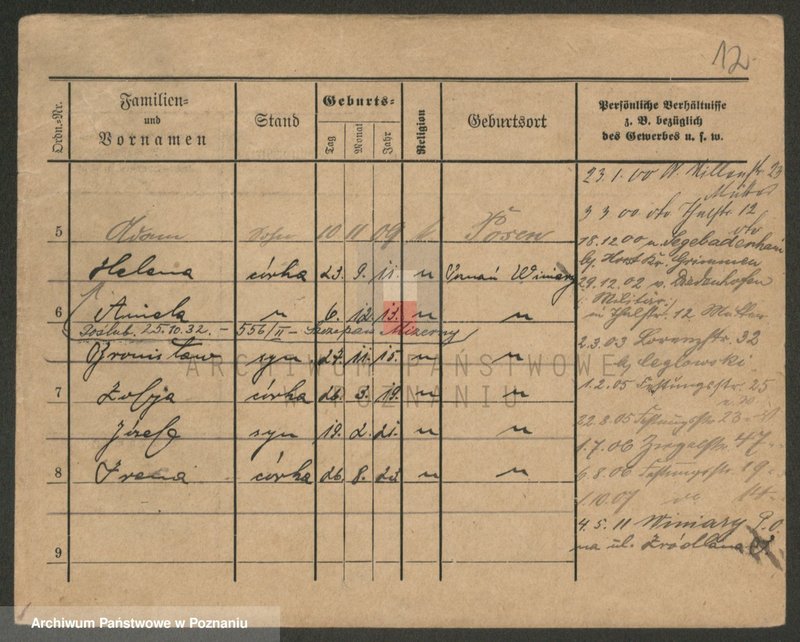 12
Ordn.-Nr.
Familien-
und
Vornamen
Stand
Geburts-
Tag
Monat
Jahr
Religion
Geburtsort
Persönliche Verhältnisse
z. B. bezüglich
des Gewerbes u. s. w.
23.1.00
23
3 3 00 Thalstr 12
5 Adam Sohn 10 11 09 k Posen
18.12.00 n. Segebadenhau
Helena córka 23. 9. 11. " Poznań Winiary
by Horst Kr. Grimmen
29.12.02 n. Diedenhofen
z. Militär.
6 Aniela " 6. 12. 13. " "
in Thalstr. 12. Mutter
Poślub. 25.10.32. – 556/II – Szczepan Mizerny
2.3.03 Lorenzstr. 32
Bronisław syn 27. 11. 15. " "
by Ceglowski
ARCHIWUM PAŃSTWOWE
W POZNANIU
1.2.05 Festungsstr. 25
7 Zofja córka 26. 3. 19. " "
22.8.05 Festungsstr 23
Józef syn 19. 2. 21. " "
1.7.06 Ziegelstr. 47
8 Irena córka 26. 8. 23. " "
6.8.06 Festungsstr. 19
1.10.07
4.5.11 Winiary P.O.
na ul. Źródlana
9
Archiwum Państwowe w Poznaniu